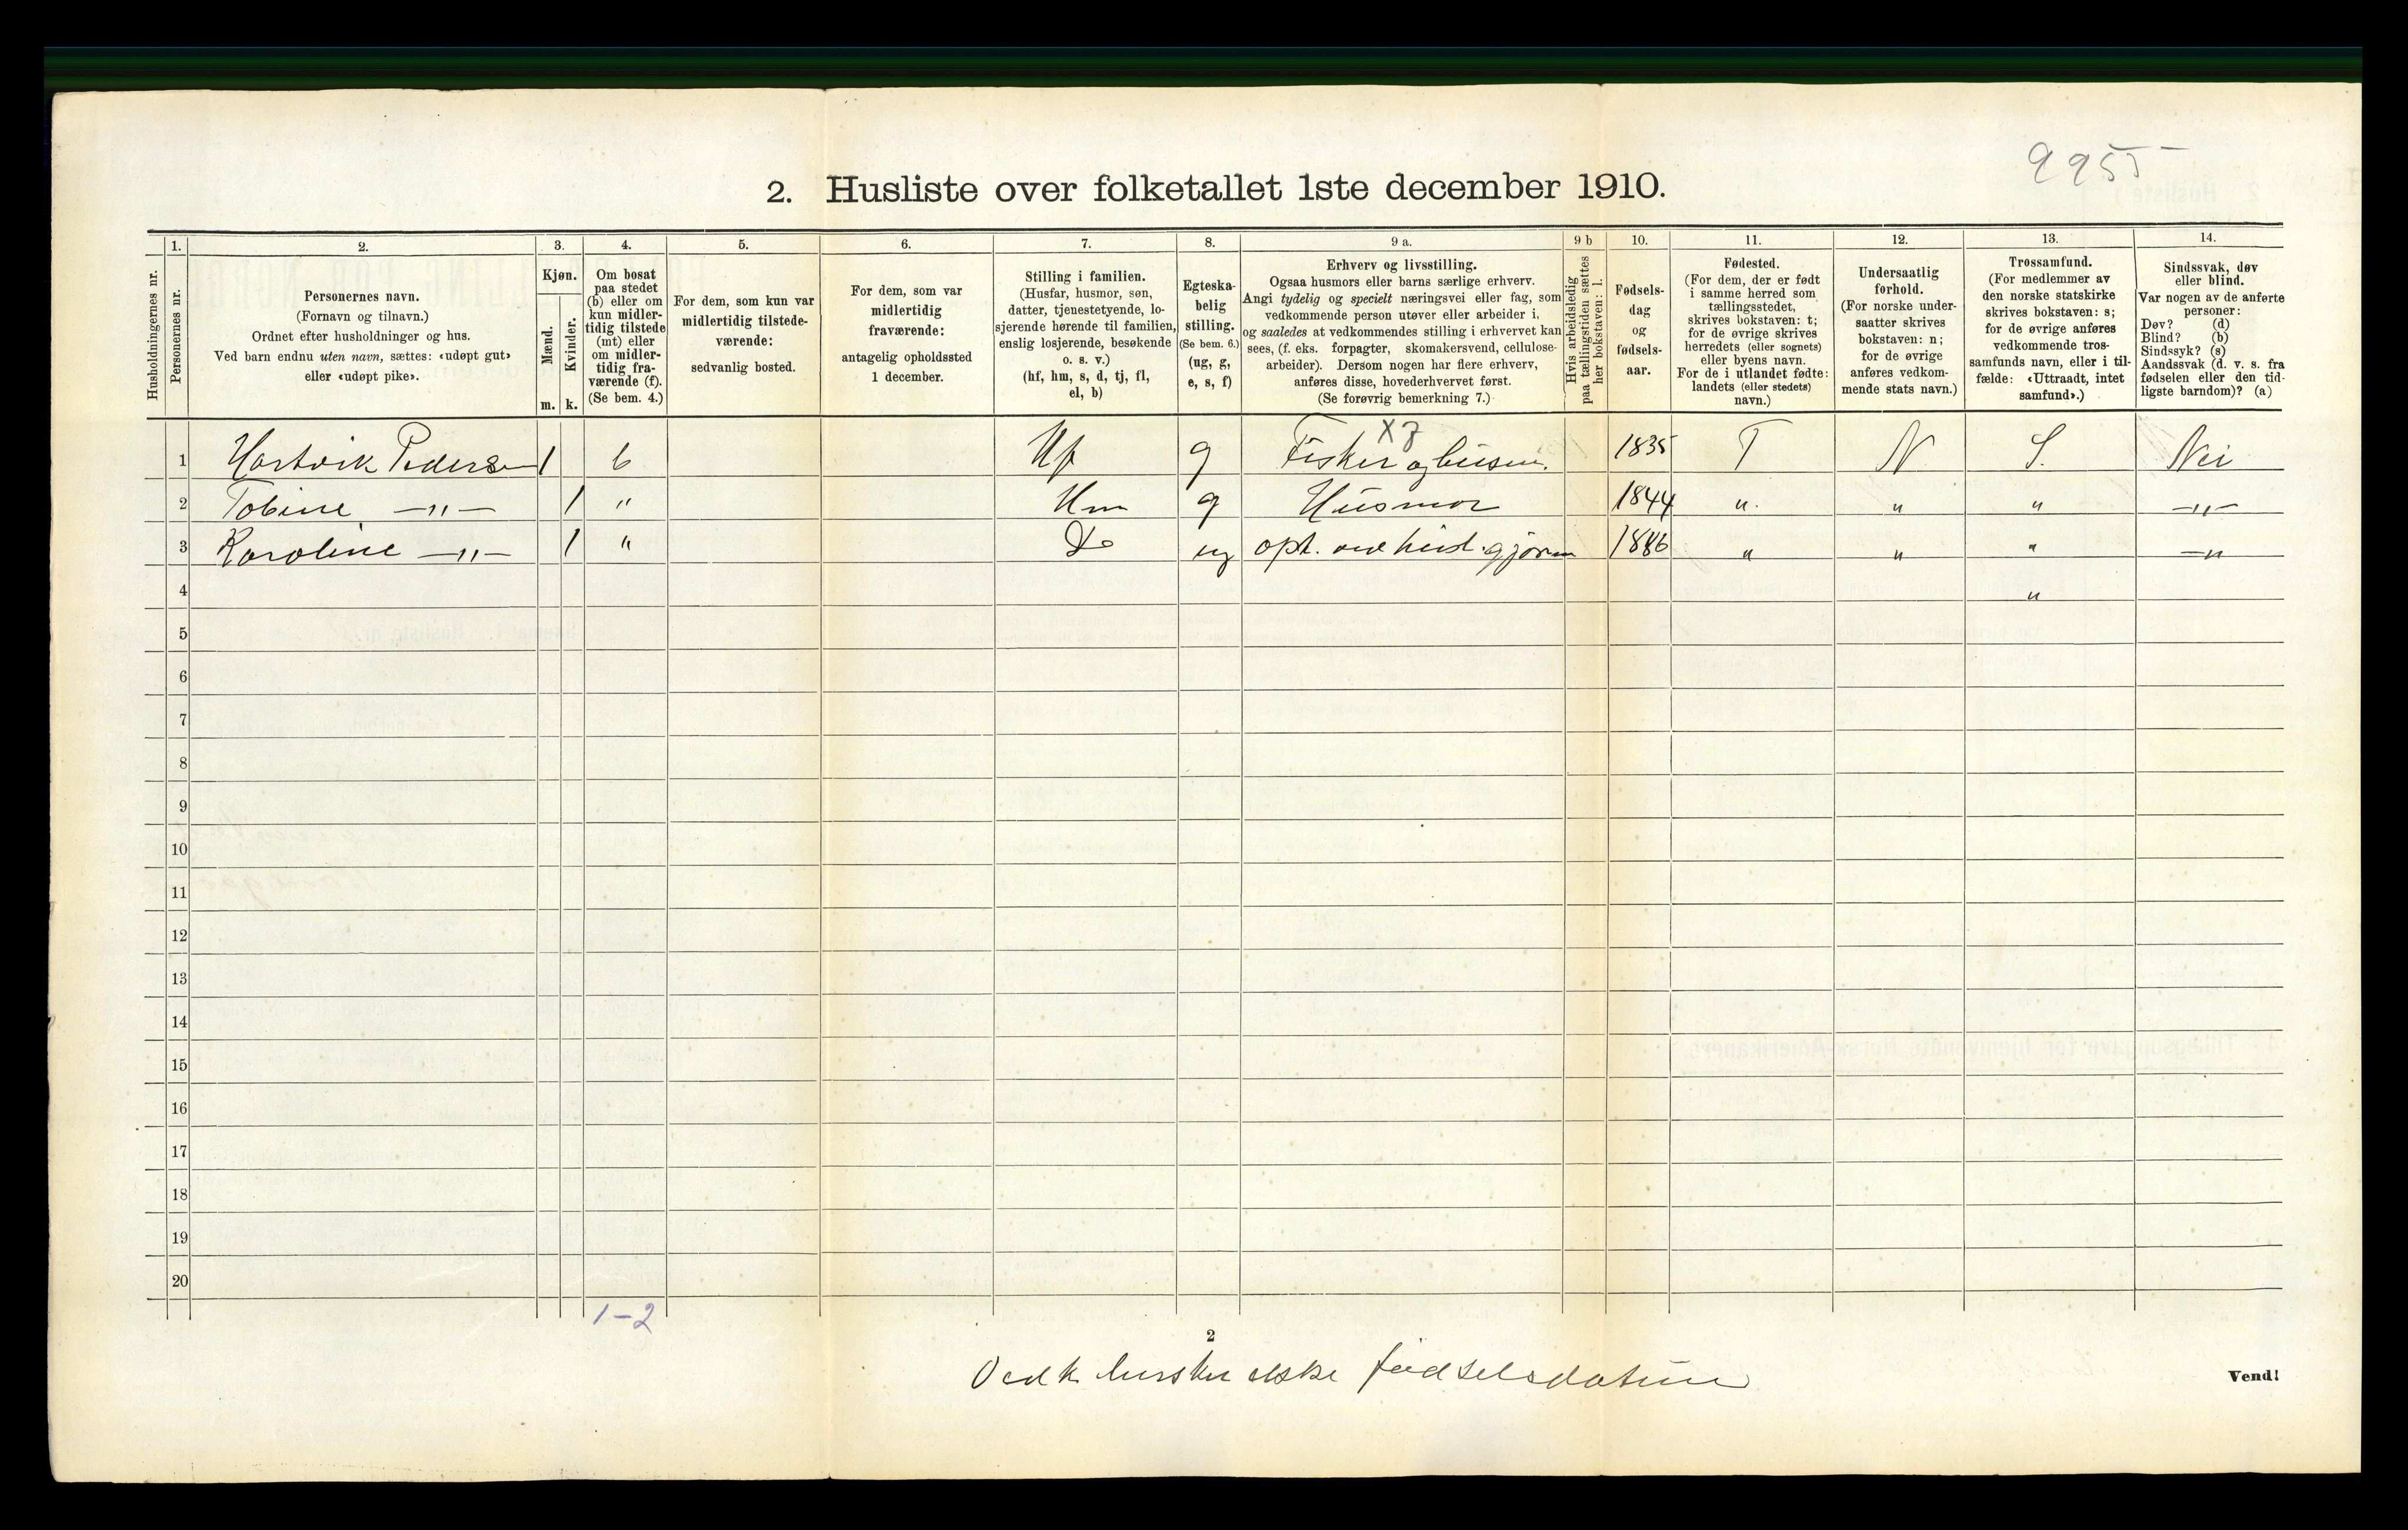 9955
2. Husliste over folketallet 1ste december 1910.
1. 2. 3. 4. 5. 6. 7. 8. 9 a. 9 b 10. 11. 12. 13. 14.
Husholdningernes nr.
Personernes nr.
Personernes navn.
(Fornavn og tilnavn.)
Ordnet efter husholdninger og hus.
Ved barn endnu uten navn, sættes: «udøpt gut»
eller «udøpt pike».
Kjøn.
Mænd.
Kvinder.
m. k.
Om bosat
paa stedet
(b) eller om
kun midler-
tidig tilstede
(mt) eller
om midler-
tidig fra-
værende (f).
(Se bem. 4.)
For dem, som kun var
midlertidig tilstede-
værende:
sedvanlig bosted.
For dem, som var
midlertidig
fraværende:
antagelig opholdssted
1 december.
Stilling i familien.
(Husfar, husmor, søn,
datter, tjenestetyende, lo-
sjerende hørende til familien,
enslig losjerende, besøkende
o. s. v.)
(hf, hm, s, d, tj, fl,
el, b)
Egteska-
belig
stilling.
(Se bem. 6.)
(ug, g,
e, s, f)
Erhverv og livsstilling.
Ogsaa husmors eller barns særlige erhverv.
Angi tydelig og specielt næringsvei eller fag, som
vedkommende person utøver eller arbeider i,
og saaledes at vedkommendes stilling i erhvervet kan
sees, (f. eks. forpagter, skomakersvend, cellulose-
arbeider). Dersom nogen har flere erhverv,
anføres disse, hovederhvervet først.
(Se forøvrig bemerkning 7.)
Hvis arbeidsledig
paa tællingstiden sættes
her bokstaven: l.
Fødsels-
dag
og
fødsels-
aar.
Fødested.
(For dem, der er født
i samme herred som
tællingsstedet,
skrives bokstaven: t;
for de øvrige skrives
herredets (eller sognets)
eller byens navn.
For de i utlandet fødte:
landets (eller stedets)
navn.)
Undersaatlig
forhold.
(For norske under-
saatter skrives
bokstaven: n;
for de øvrige
anføres vedkom-
mende stats navn.)
Trossamfund.
(For medlemmer av
den norske statskirke
skrives bokstaven: s;
for de øvrige anføres
vedkommende tros-
samfunds navn, eller i til-
fælde: «Uttraadt, intet
samfund».)
Sindssvak, døv
eller blind.
Var nogen av de anførte
personer:
Døv? (d)
Blind? (b)
Sindssyk? (s)
Aandssvak (d. v. s. fra
fødselen eller den tid-
ligste barndom)? (a)
X 7
1 Hartvik Pedersen 1 b Hf g Fisker og 1835 T N S. Nei
2 Tobine —"— 1 " Hm g Husmor 1844 " " " —"—
3 Karoline —"— 1 " D ug opt. ved 1886 " " " —"
4 "
5
6
7
8
9
10
11
12
13
14
15
16
17
18
19
20
1–2
2
Vedk fødselsdatum
Vend!